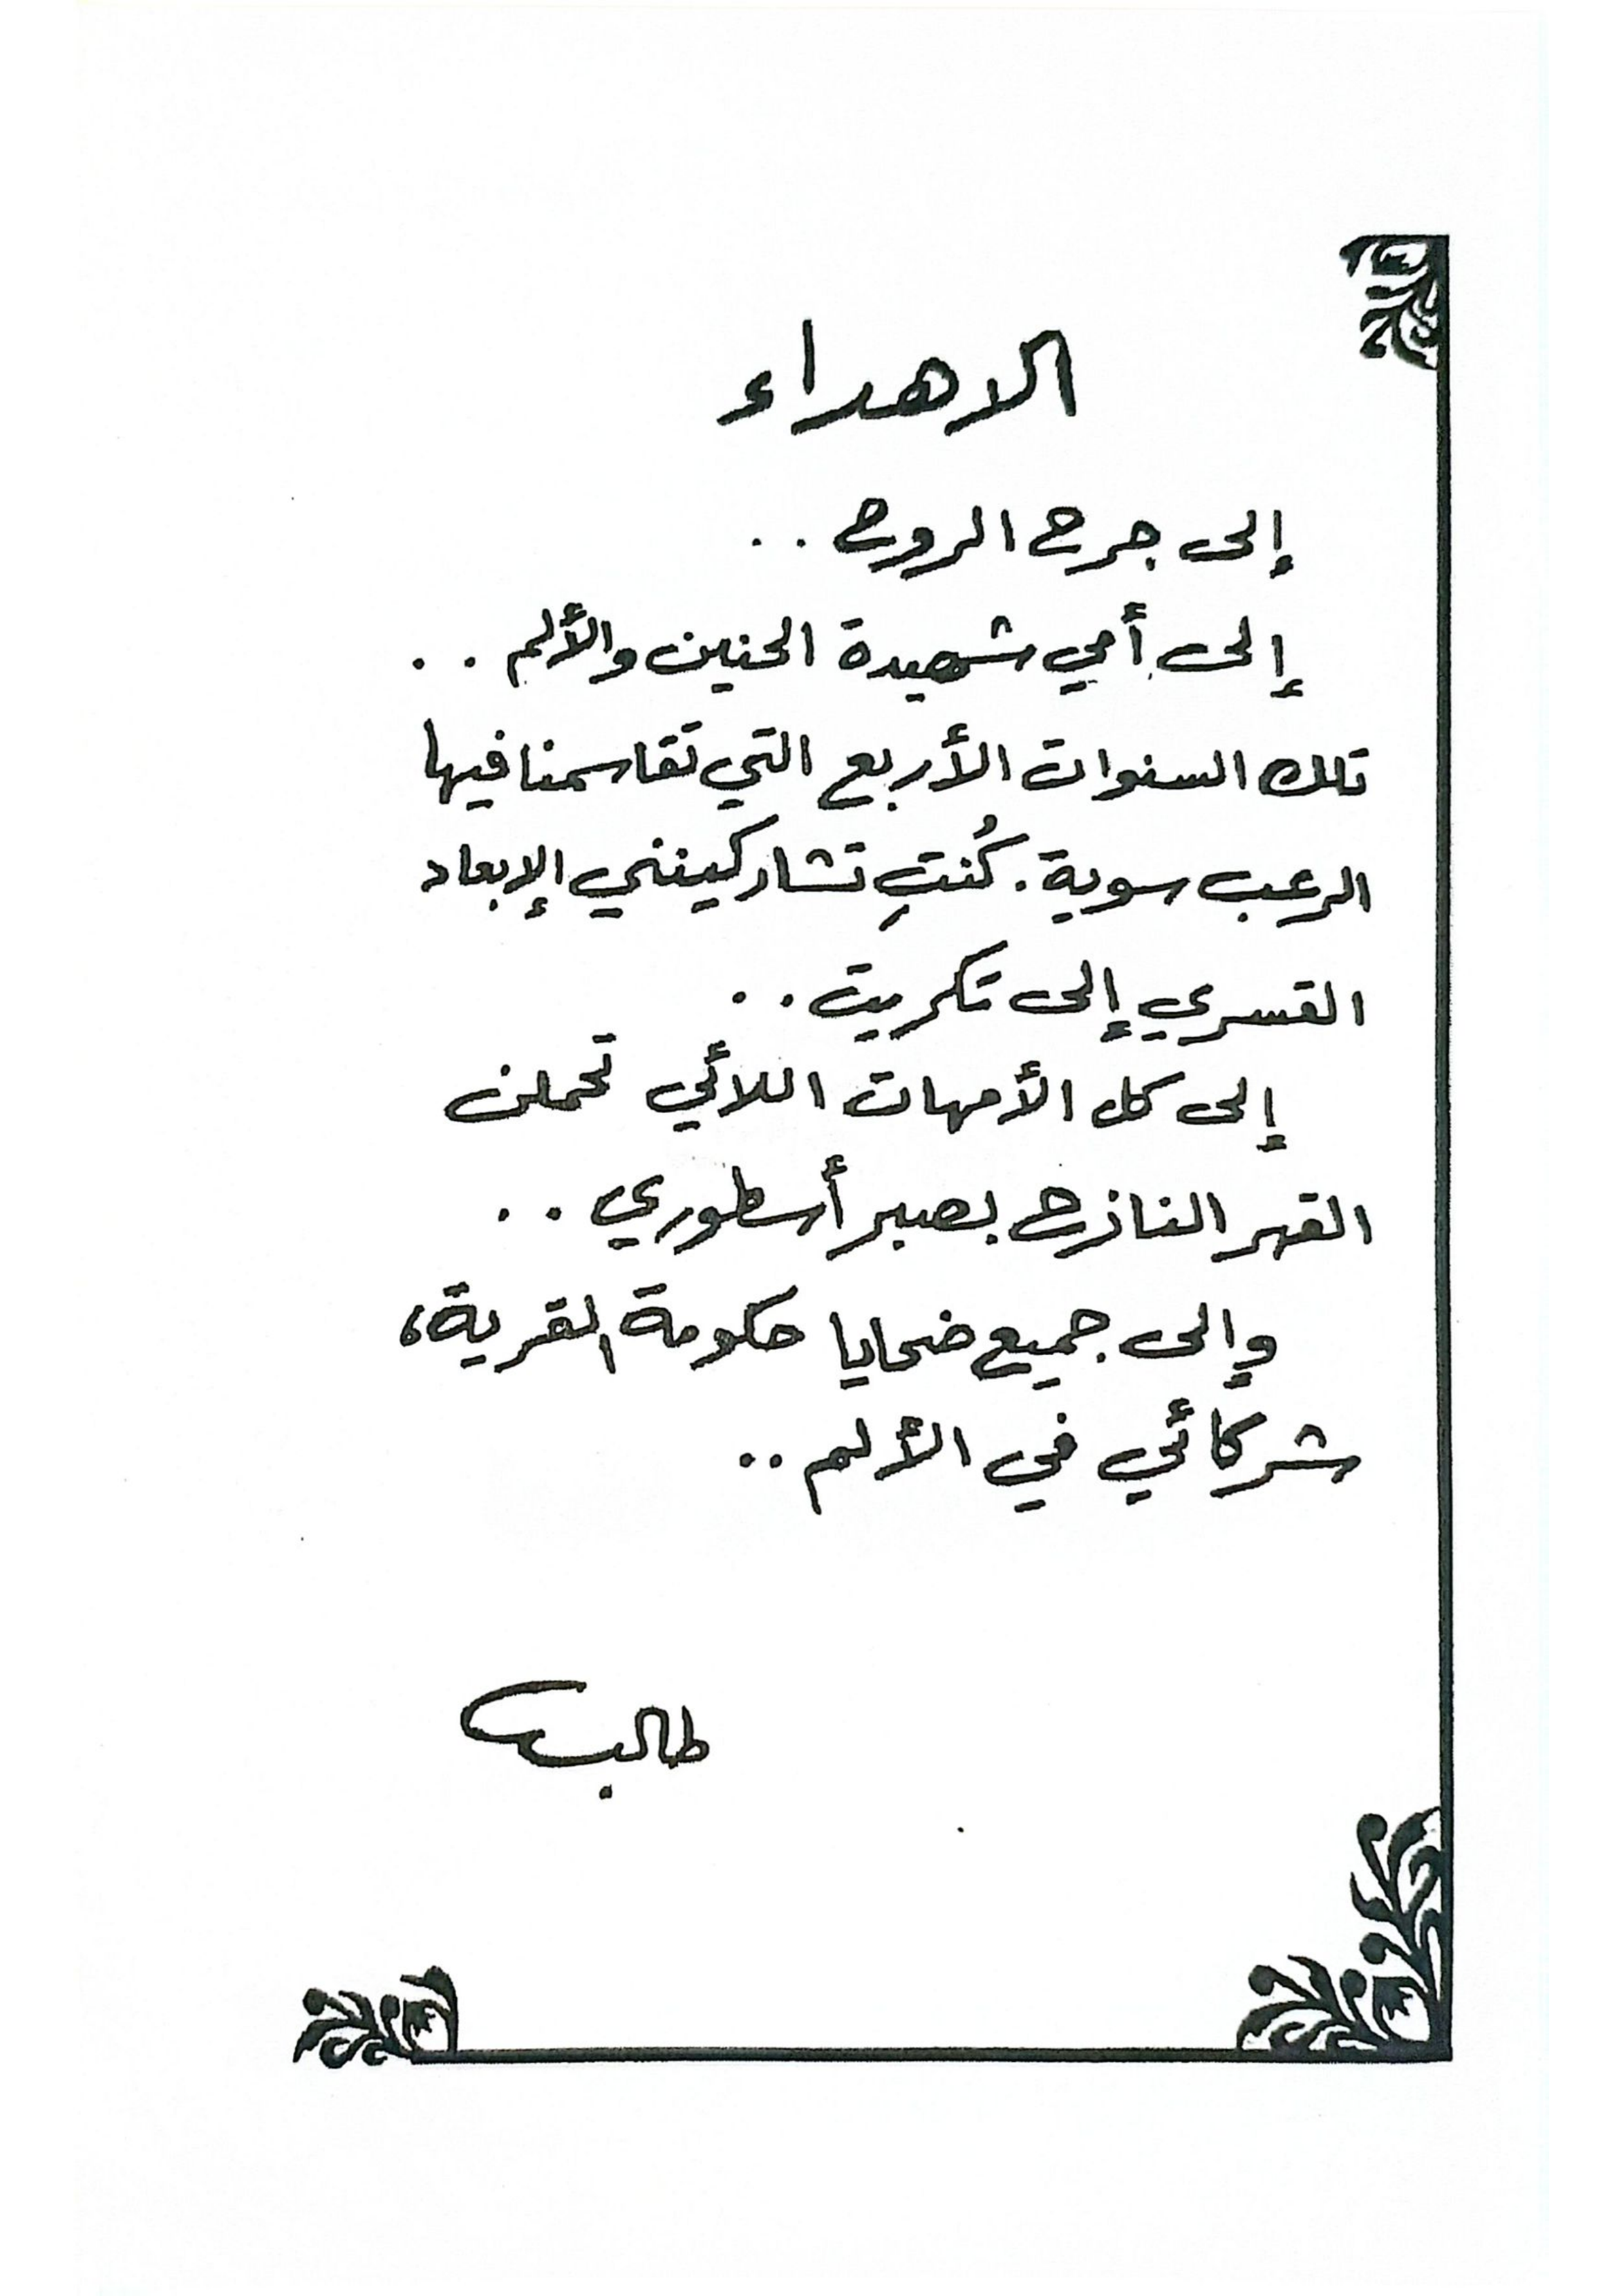 الاهداء
إلى جرح الروح ..
إلى أمي شهيدة الحنين والألم ..
تلك السنوات الأربع التي تقاسمنا فيها
الرعب سوية . كُنتِ تشاركينني الإبعاد
القسري إلى تكريت ..
إلى كل الأمهات اللائي تحملن
القهر النازح بصبر أسطوري ..
وإلى جميع ضحايا حكومة القرية،
شركائي في الألم ..
طالب